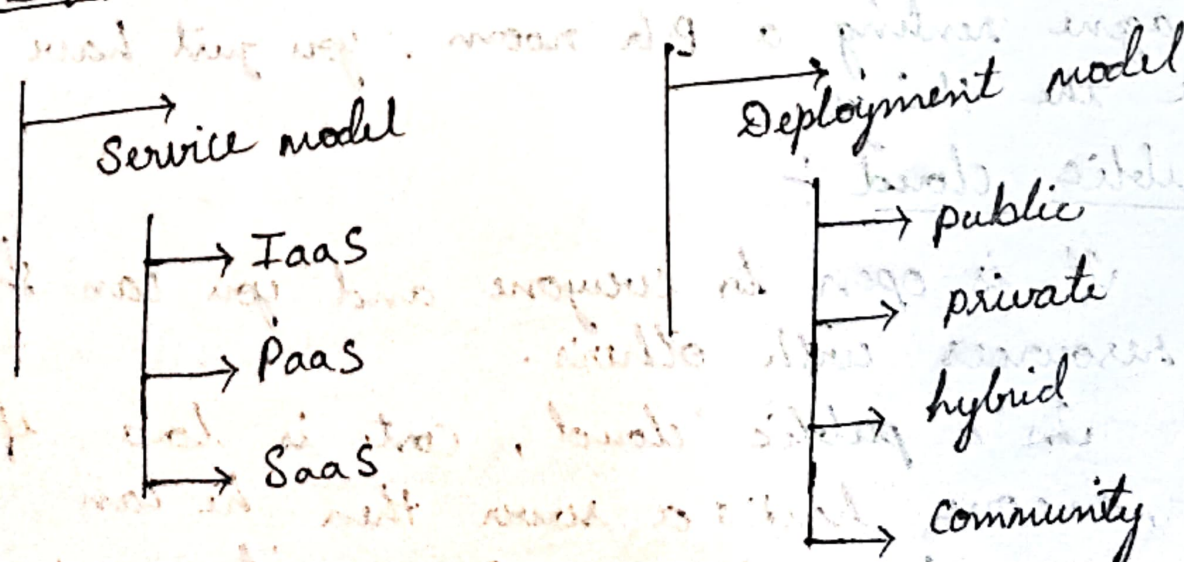 Service model
IaaS
PaaS
SaaS
Deployment model
public
private
hybrid
community